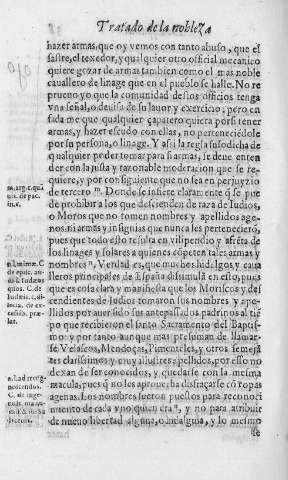 Tratado de la nobleza
hazer armas, que oy vemos con tanto abuso, que el
sastre, el texedor, y qualquier otro official mecanico
quiere gozar de armas tambien como el mas noble
cauallero de linage que en el pueblo se halle. No re
prueuo yo que la comunidad destos officios tenga
vna señal, o deuisa de su lauor y exercicio; pero en
fada me que qualquier çapatero quiera por si tener
armas, y hazer escudo con ellas, no perteneciẽdole
por su persona, o linage. Y assi la regla susodicha de
qualquier poder tomar para si armas, se deue enten
der con la justa y razonable moderacion que se re
quiere, y por consiguiente que no sea en perjuyzio
de tercero. Donde se infiere claramente q̃ se pue
de prohibir a los que descienden de raza de Iudios,
o Moros que no tomen nombres y apellidos age
nos, ni armas y insignias que nunca les pertenecierõ,
pues que todo esto resulta en vilipendio y afrẽta de
los linages y solares a quienes cõpeten tales armas y
nombres. Verdad es, que muchos hidalgos, y caua
lleros principales de España dissimulã en esto, pues
que es cosa clara y manifiesta que los Moriscos y des
cendientes de Iudios tomaron sus nombres, y ape
llidos por auer sido sus antepassados padrinos al tiẽ
po que recibieron el santo Sacramento del Baptis
mo: y por tanto aunque mas presuman de llamar
se Velascos, Mendoças, Pimenteles, y otros seme
jãtes clarissimos y muy illustres apellidos, por esso no
dexan de ser conocidos, y quedarse con la mesma
macula, pues q̃ no les aprouecha disfraçarse cõ ropas
agenas. Los nombres fueron puestos para reconoci
miento de cada vno quien era, y no para atribuir
de nueuo libertad alguna, o hidalguia, y lo mesmo
se